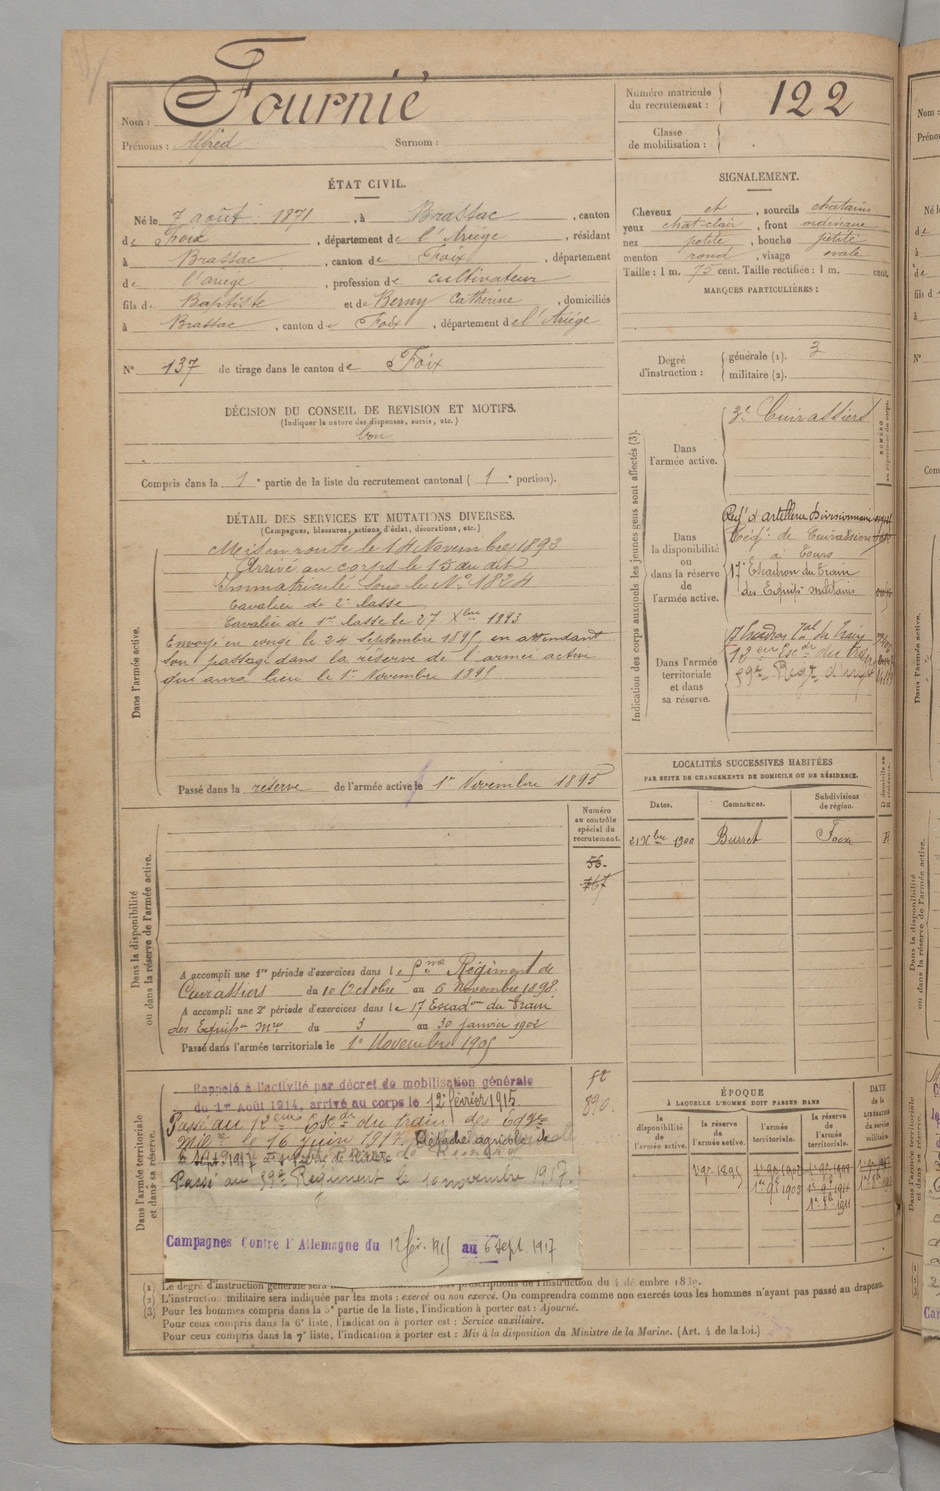 Nom : Fournié
Prénoms : Alfred Surnom :
Numéro matricule du recrutement : 122
Classe de mobilisation :
ÉTAT CIVIL.
Né le 7 août 1871, à Brassac, canton
de Foix, département de l'Ariège, résidant
à Brassac, canton de Foix, département
de l'ariège, profession de cultivateur
fils de Baptiste et de Berny Catherine, domiciliés
à Brassac, canton de Foix, département de l'Ariège
N° 137 de tirage dans le canton de Foix
SIGNALEMENT.
Cheveux et, sourcils chatains
yeux chat-clair, front ordinaire
nez petite, bouche petite
menton rond, visage ovale
Taille : 1 m. 75 cent. Taille rectifiée : 1 m. cent.
MARQUES PARTICULIÈRES :
Degré d'instruction : générale (1). 3
militaire (2).
DÉCISION DU CONSEIL DE REVISION ET MOTIFS.
(Indiquer la nature des dispenses, sursis, etc.)
bon
Compris dans la 1e partie de la liste du recrutement cantonal (1e portion).
DÉTAIL DES SERVICES ET MUTATIONS DIVERSES.
(Campagnes, blessures, actions d'éclat, décorations, etc.)
Dans l'armée active.
Mis en route le 14 Novembre 1892
Arrivé au corps le 15 du dit
Immatriculé sous le N° 1824
Cavalier de 2e classe
Cavalier de 1re classe le 27 Xbre 1893
Envoyé en congé le 24 Septembre 1895 en attendant
son passage dans la réserve de l'armée active
qui aura lieu le 1er Novembre 1895
Passé dans la réserve de l'armée active le 1er Novembre 1895
Indication des corps auxquels les jeunes gens sont affectés (3).
Dans l'armée active.
3e Cuirassiers
Dans la disponibilité ou dans la réserve de l'armée active.
Régt d'artillerie Divisionnaire
Régt de Cuirassiers
à Tours
17e Escadron du Train
des Equips militaires
Dans l'armée territoriale et dans sa réserve.
17 Escadron Tal du Train
12e Escdr du Train
59e Regt d'inf
LOCALITÉS SUCCESSIVES HABITÉES
PAR SUITE DE CHANGEMENTS DE DOMICILE OU DE RÉSIDENCE.
Dates. Communes. Subdivisions de région.
21 Xbre 1900 Burret Foix R
Dans la disponibilité ou dans la réserve de l'armée active.
Numéro au contrôle spécial du recrutement.
56.
767
A accompli une 1re période d'exercices dans le 9me Régiment de
Cuirassiers du 10 Octobre au 6 Novembre 1898
A accompli une 2e période d'exercices dans le 17 Escadon du Train
des Equips Mres du 3 au 30 janvier 1902
Passé dans l'armée territoriale le 1er Novembre 1905
Dans l'armée territoriale et dans sa réserve.
Rappelé à l'activité par décret de mobilisation générale
du 1er Août 1914, arrivé au corps le 12 février 1915.
890.
Passé au 12eme Escdr du train des Eqges
Mres le 16 juin 1917. Détaché agricole
Passé au 59e Régiment le 10 novembre 1917.
Campagnes Contre l'Allemagne du 12 fév. 1915 au 6 Sept 1917
ÉPOQUE
À LAQUELLE L'HOMME DOIT PASSER DANS
la disponibilité de l'armée active.
la réserve de l'armée active.
l'armée territoriale.
la réserve de l'armée territoriale.
DATE de la LIBÉRATION du service militaire.
(1) Le degré d'instruction générale sera prescriptions de l'instruction du 4 décembre 1889.
(2) L'instruction militaire sera indiquée par les mots : exercé ou non exercé. On comprendra comme non exercés tous les hommes n'ayant pas passé au drapeau.
(3) Pour les hommes compris dans la 5e partie de la liste, l'indication à porter est : Ajourné.
Pour ceux compris dans la 6e liste, l'indication à porter est : Service auxiliaire.
Pour ceux compris dans la 7e liste, l'indication à porter est : Mis à la disposition du Ministre de la Marine. (Art. 4 de la loi.)